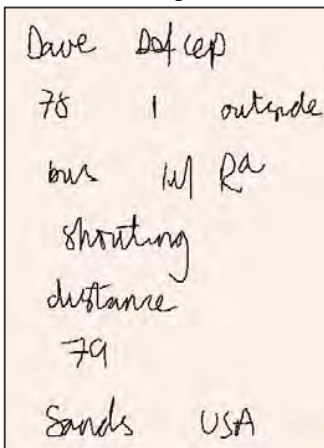 Dave
78 1 outside
bus w/ Rd
shouting
distance
79
Sands USA